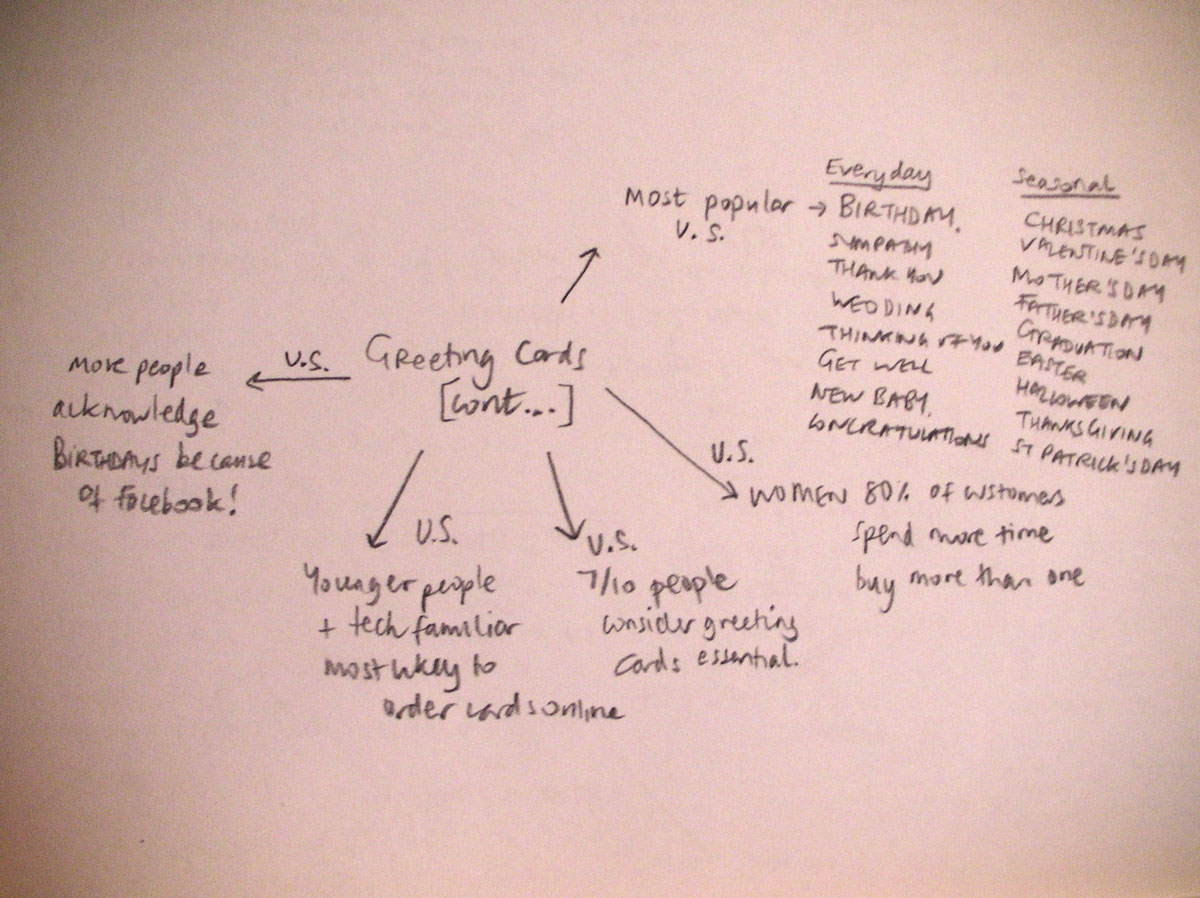 Greeting Cards
[cont...]
Most popular →
U.S.
Everyday
BIRTHDAY.
SYMPATHY
THANK YOU
WEDDING
THINKING OF YOU
GET WELL
NEW BABY.
CONGRATULATIONS
Seasonal
CHRISTMAS
VALENTINE'S DAY
MOTHER'S DAY
FATHER'S DAY
GRADUATION
EASTER
HALLOWEEN
THANKSGIVING
ST PATRICK'S DAY
U.S.
WOMEN 80% of customers
spend more time
buy more than one
U.S.
7/10 people
consider greeting
cards essential.
U.S.
Younger people
+ tech familiar
most likey to
order cards online
U.S.
More people
acknowledge
BIRTHDAYS because
of facebook!